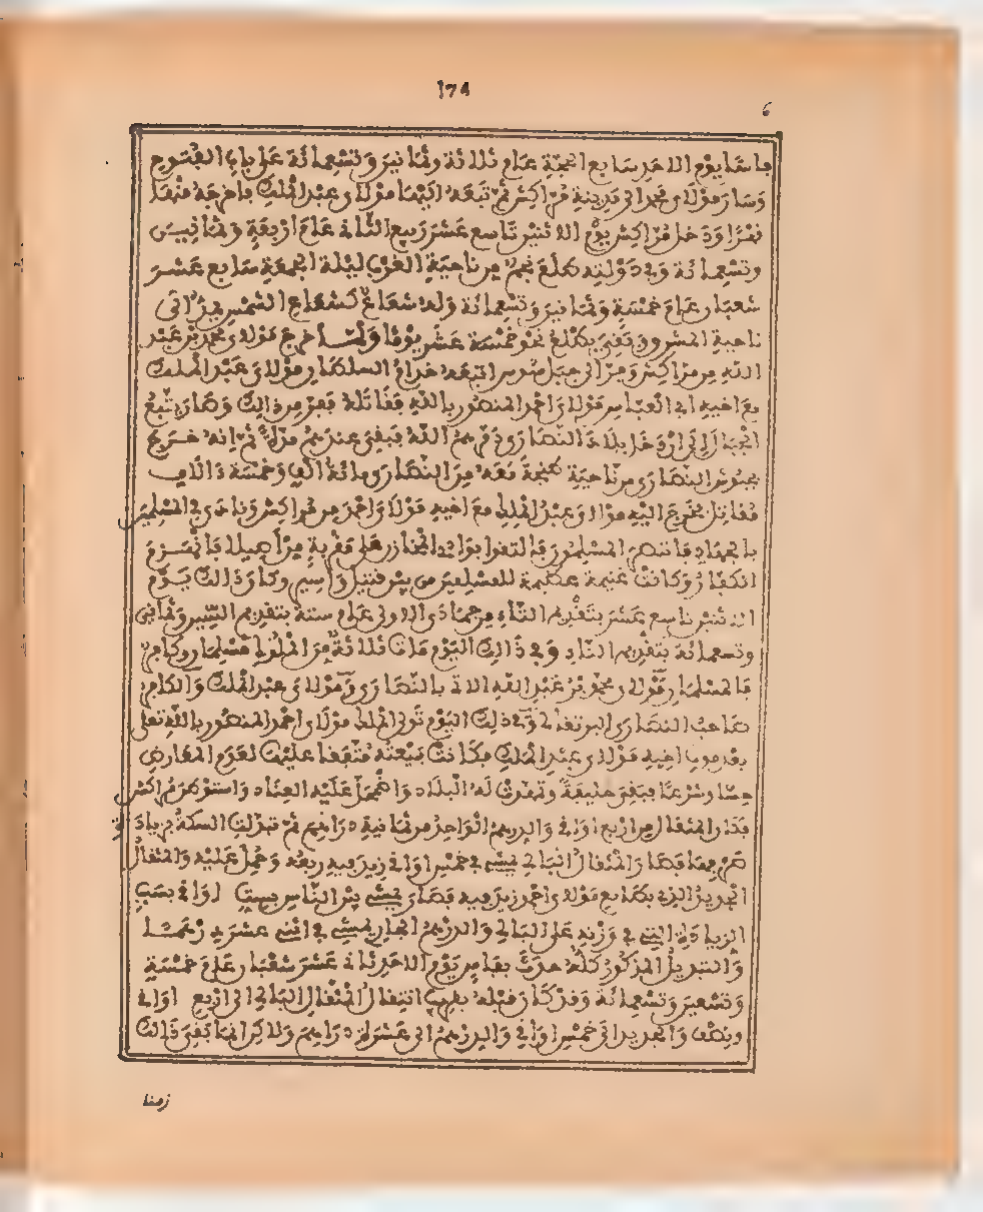 174
6
فاس يوم الاحد سابع الحجة عام ثلاثة وثمانين وتسعمائة على باب الفتوح
وسار مولاي محمد الى مدينة مراكش ثم تبعه اليها مولاي عبد الملك فاخرجه منها
ودخل مراكش يوم الاثنين تاسع عشر ربيع الثاني عام اربعة وثمانين
وتسعمائة وفي دولته طلع نجم من ناحية الغرب ليلة الجمعة سابع عشر
شعبان عام خمسة وثمانين وتسعمائة وله شعاع كشعاع الشمس الى
ناحية المشرق وبقي يطلع نحو خمسة عشر يوما ولما خرج مولاي محمد بن عبد
الله من مراكش وفر الى جبل سوس اتبعه السلطان مولاي عبد الملك
مع اخيه ابي العباس مولاي احمد المنصور بالله فقاتله ففر من ذلك وصار يتبع
الجبال الى ان دخل بلاد النصارى دمرهم الله فبقي عندهم ثم انه خرج
بجيوش النصارى من ناحية طنجة معه من النصارى مائة الف وخمسة ءالاف
مقاتل فخرج اليه مولاي عبد الملك مع اخيه مولاي احمد من مراكش ونادى في المسلمين
بالجهاد فانتهض المسلمون فالتقوا بوادي المخازن على مقربة من اصيلا فانهزم
الكفار وكانت غنيمة عظيمة للمسلمين وكان ذلك يوم
الاثنين تاسع عشر بتقديم التاء من جمادى الاولى عام ستة بتقديم السين وثمانين
وتسعمائة بتقديم التاء وفي ذلك اليوم مات ثلاثة من الملوك مسلمان وكافر
فالمسلمان مولاي محمد بن عبد الله الاتي بالنصارى ومولاي عبد الملك والكافر
صاحب النصارى البرتغالي وفي ذلك اليوم تولى الملك مولاي احمد المنصور بالله تعلى
بعد موت اخيه مولاي عبد الملك فكانت بيعته متفقا عليها لعدم المعارض
حسا وشرعا فبقي خليفة وتمهدت له البلاد واضمحل عليه العناد واستوطن مراكش
فدار المثقال من اربع اواقي والدرهم الواحد من ثمانية دراهم ثم تبدلت السكة بزيادة
صرفها فصار المثقال البالي يمشي بخمس اواقي زيد فيه ربعه وحمل عليه والمثقال
الجديد الذي بطابع مولاي احمد زيد فيه فصار يمشي بين الناس بست اواقي بسبب
الزيادة التي في وزنه على البالي والدرهم الجاري يمشي في اثني عشر درهما
والتبديل المذكور كله حدث بفاس يوم الاحد ثاني عشر شعبان عام خمسة
وتسعين وتسعمائة وقد كان قبله بقريب انتقل المثقال البالي الى اربع اواقي
ونصف والجديد الى خمس اواقي والدرهم الى عشرة دراهم ولاكن انما بقي ذلك
زمنا